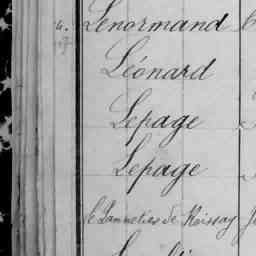 Lenormand
Léonard
Lepage
Lepage
Le Pannetier de Roissay